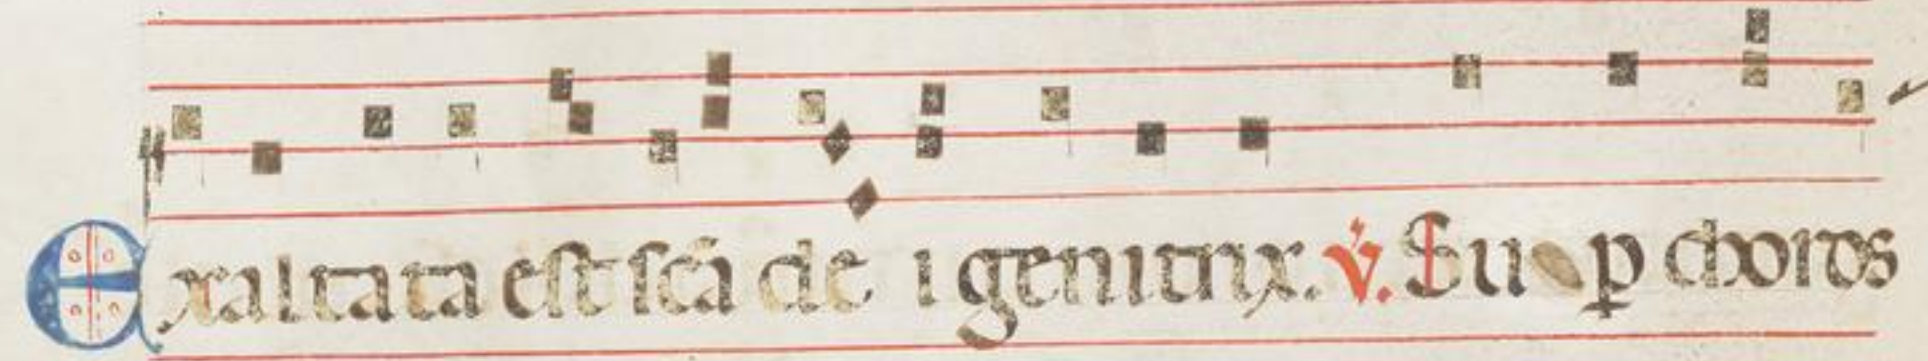 Exaltata est scā de i genitrix. V̇. Su p choros